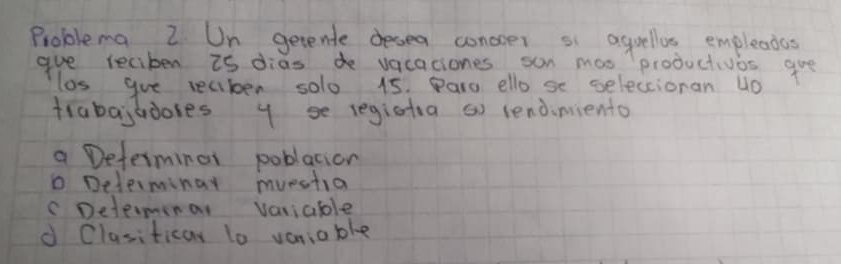 Problema 2 Un gerente desea conocer si aquellos empleados
que reciben 25 dias de vacaciones son mas productivos que
los que reciben solo 15. Para ello se seleccionan 40
trabajadores y se registra su rendimiento
a Determinar poblacion
b Determinar muestra
c Determinar variable
d Clasificar la variable